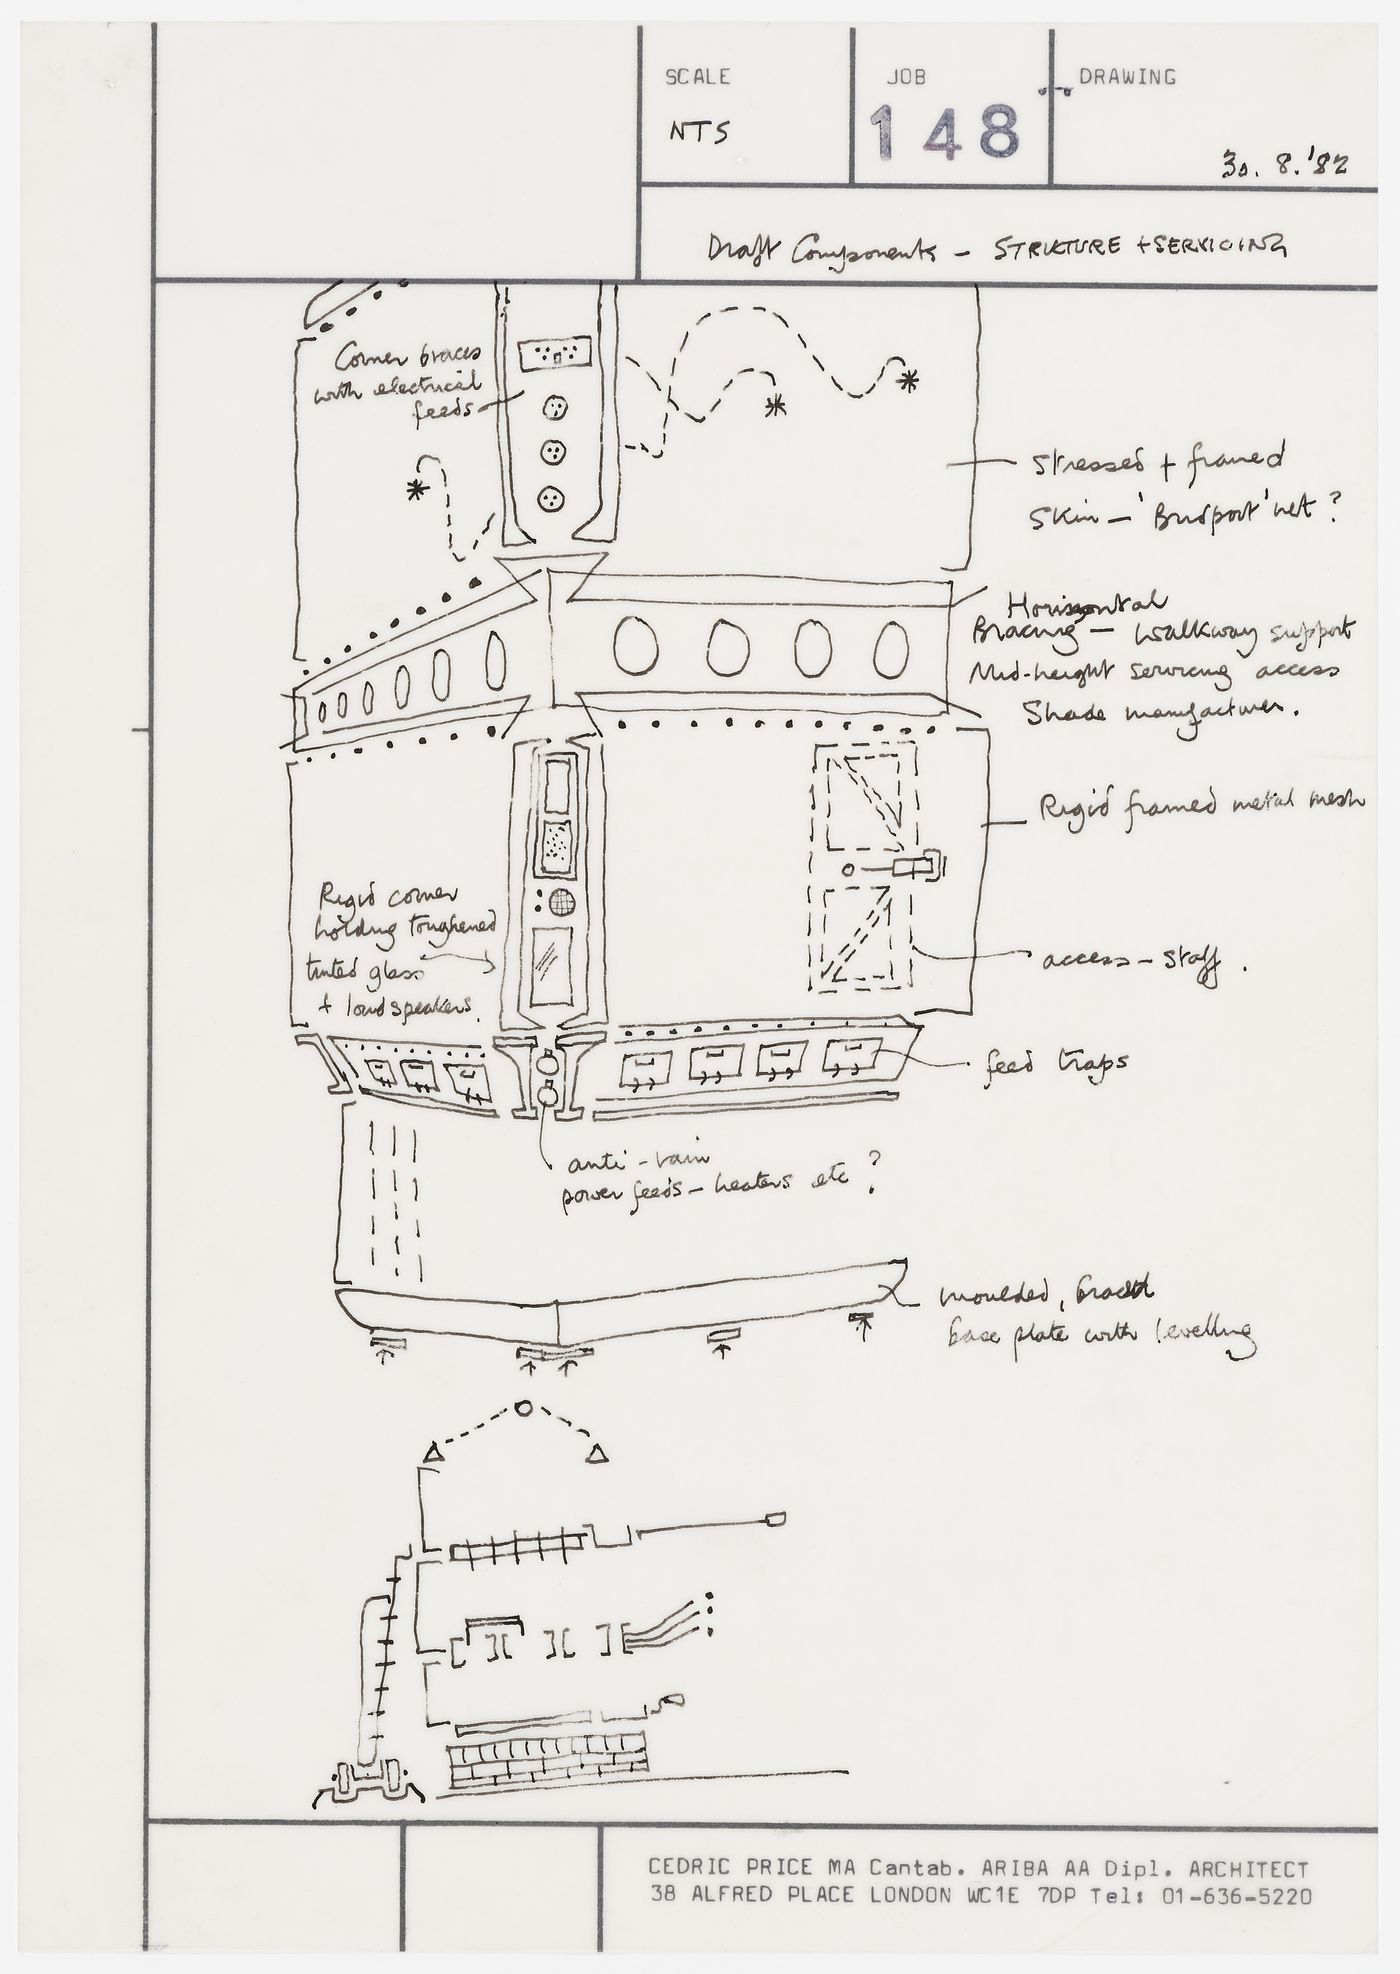 SCALE
NTS
JOB
148
DRAWING
30. 8. '82
Draft Components - STRUCTURE + SERVICING
Corner braces
with electrical
feeds
Stressed + framed
Skin - 'Bridport' net ?
Horizontal
Bracing - Walkway support
Mid-height servicing access
Shade manufacturer.
Rigid framed metal mesh
Rigid corner
holding toughened
tinted glass
+ loudspeakers.
access - staff.
feed traps
anti-rain
power feeds - heaters etc ?
moulded,
base plate with levelling
CEDRIC PRICE MA Cantab. ARIBA AA Dipl. ARCHITECT
38 ALFRED PLACE LONDON WC1E 7DP Tel: 01-636-5220